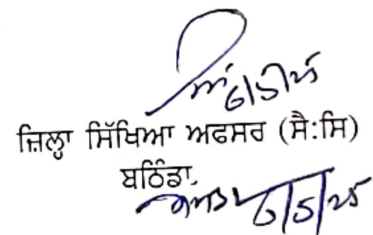 6/5/25
ਜ਼ਿਲ੍ਹਾ ਸਿੱਖਿਆ ਅਫਸਰ (ਸੈ:ਸਿ)
ਬਠਿੰਡਾ.
6/5/25